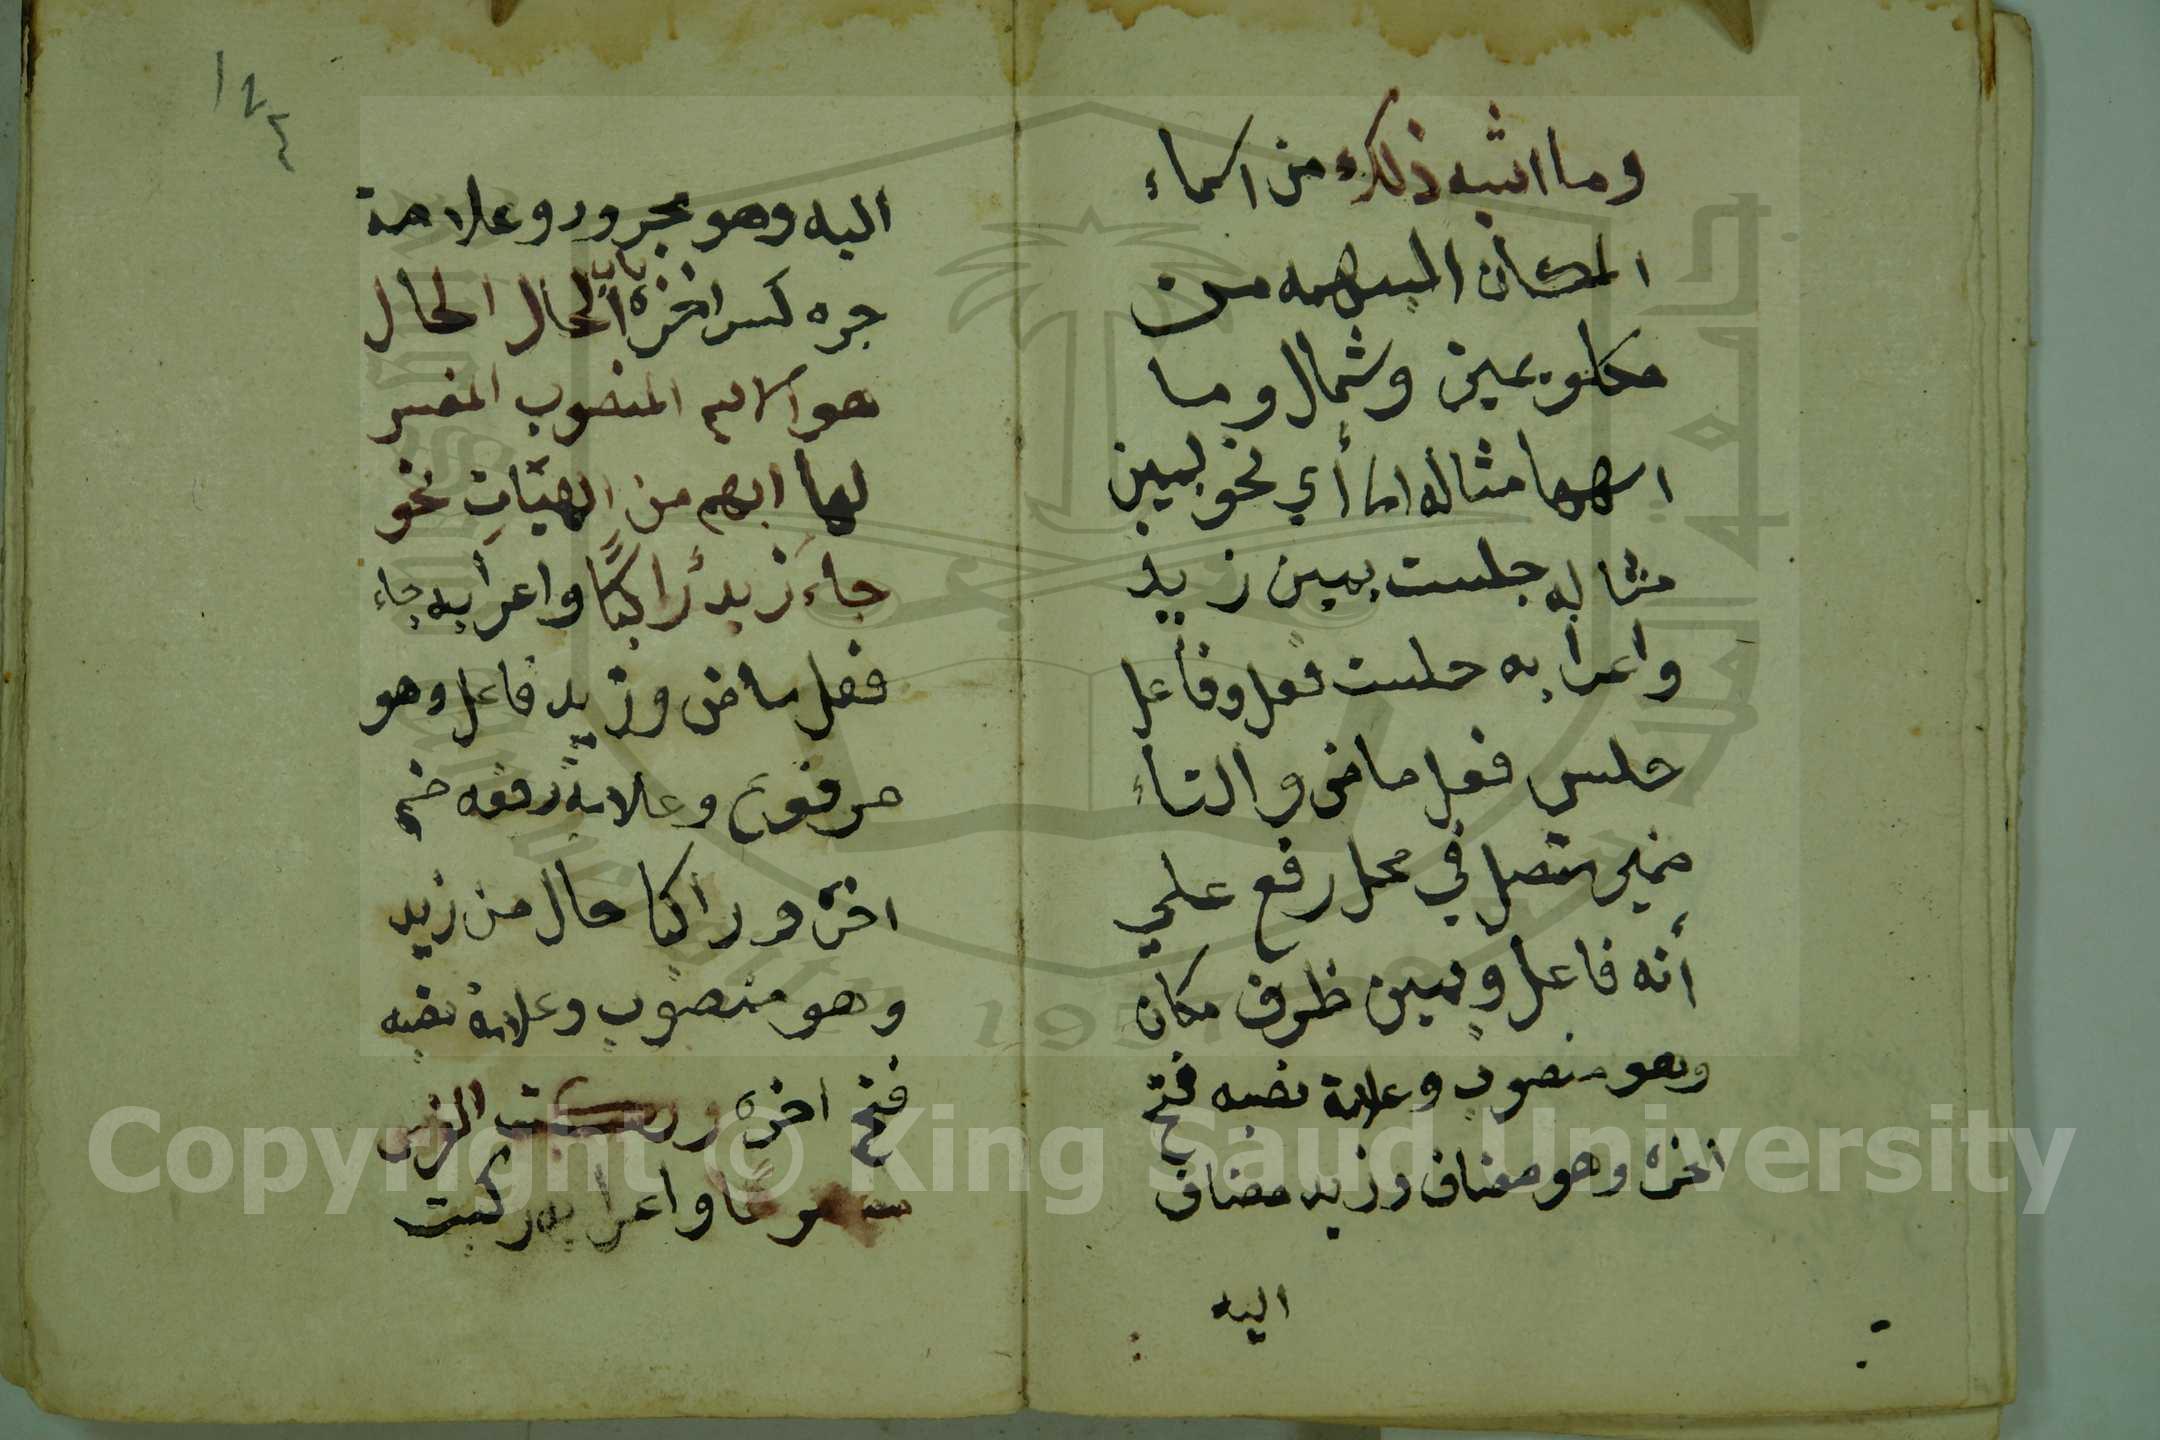 وما اشبه ذلك من اسماء
المكان المبهمه من
يمين وشمال وما
اسهما مثاله اما أي نحو يمين
مثاله جلست يمين زيد
واعرابه جلست فعل وفاعل
جلس فعل ماض والتاء
ضمير متصل في محل رفع علي
أنه فاعل ويمين ظرف مكان
وهو منصوب وعلامة نصبه فتح
اخره وهو مضاف وزيد مضاف
اليه
١٢٤
اليه وهو مجرور وعلامة
جره كسر اخره باب الحال الحال
هو الاسم المنصوب المفسر
لما ابهم من الهيّاتِ نحو
جاءَ زيدٌ راكبًا واعرابه جاء
فعل ماض وزيد فاعل وهو
مرفوع وعلامة رفعه ضم
اخره وراكبا حال من زيد
وهو منصوب وعلامة نصبه
فتح اخره وركبت الفرس
مسرجا واعرابه ركبت
Copyright © King Saud University
1957